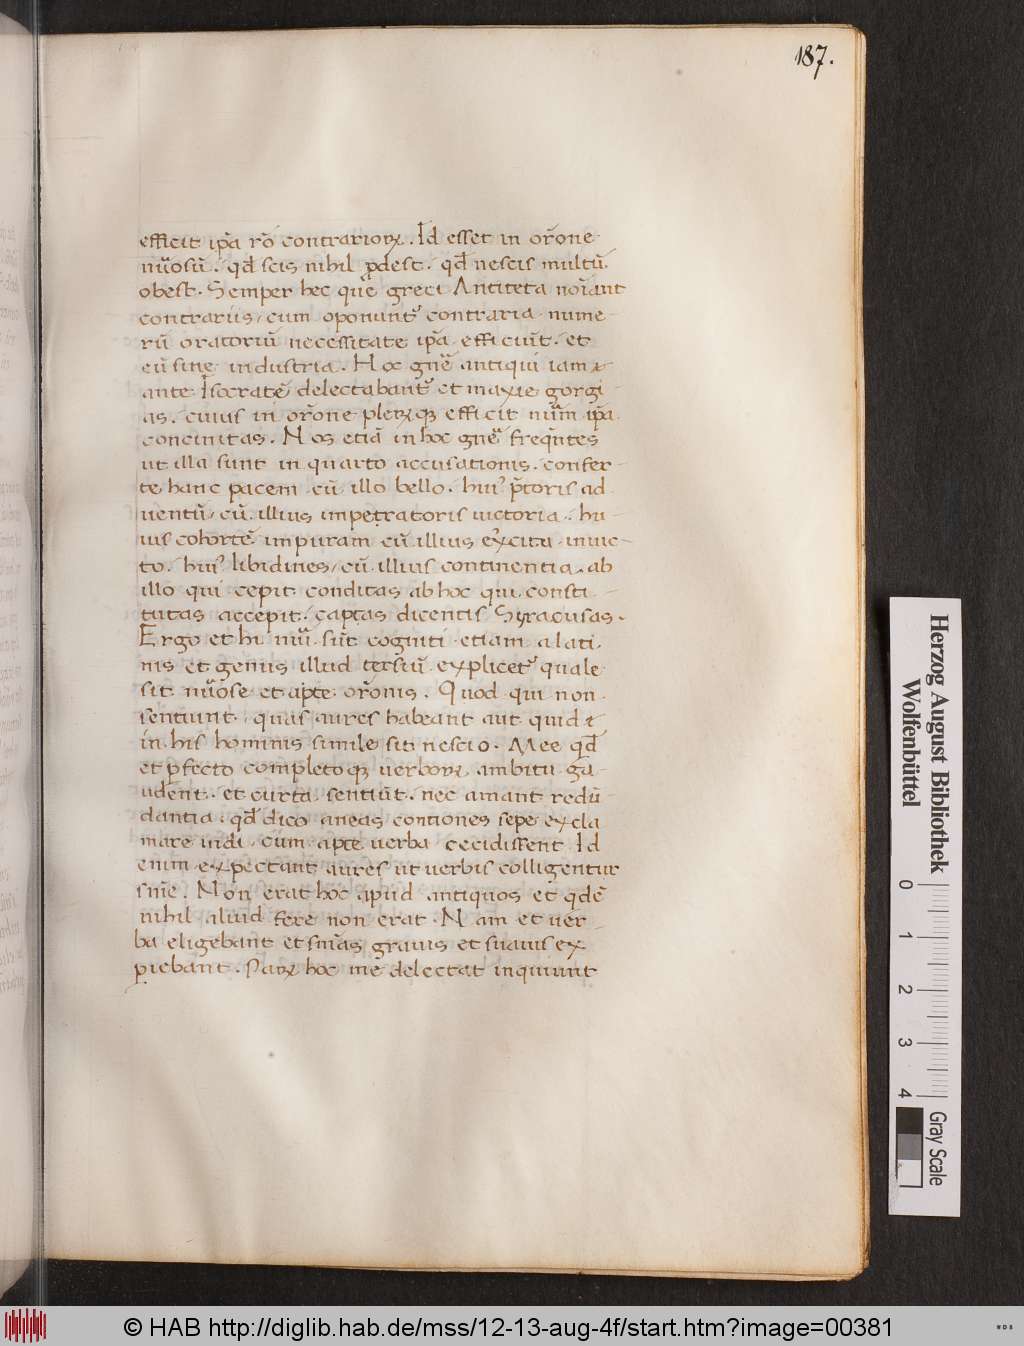 187.
efficit ip̄a rō contrarioꝝ. Id esset in or̄one
nūosū. qd̄ scis nihil ꝓdest. qd̄ nescis multū
obest. Semper hec que greci Antiteta noīant
contrariis, cum oponunt᷑ contraria nume-
rū oratoriū necessitate ip̄a efficiūt. et
eū sine industria. Hoc gn̄e antiqui iam
ante Isocratē delectabant᷑ et maxīe gorgi-
as. cuius in or̄one pleꝝqꝫ efficit nūm ip̄a
concinitas. Nos etiā in hoc gn̄e freqn̄tes
ut illa sunt in quarto accusationis. confer-
te hanc pacem cū illo bello. hui᷒ p̄toris ad
uentū, cū illius impetratoris uictoria. hu-
ius cohortē impuram cū illius exc̄itu inuic-
to. hui᷒ libidines, cū illius continentia. ab
illo qui cepit conditas ab hoc qui consti
tutas accepit. captas dicentis Syracusas.
Ergo et hi nūi sūt cogniti etiam a lati
nis et genus illud tersiū explicet᷑ quale
sit nūose et apte or̄onis. Quod qui non
sentiunt, quas aures habeant aut quid
in his hominis simile sit nescio. Mee qd̄
et ꝑfecto completoqꝫ uerboꝝ ambitu ga
udent. et curta sentiūt. nec amant redū
dantia. qd̄ dico aneas contiones sepe excla
mare uidi cum apte uerba cecidissent Id
enim expectant aures ut uerbis colligentur
sn̄ie. Non erat hoc apud antiquos et qdē
nihil aliud fere non erat. Nam et uer-
ba eligebant et sn̄ias grauis et suauis ex
piebant. Sanꝝ hoc me delectat inquiunt
Herzog August Bibliothek
Wolfenbüttel
0 1 2 3 4
Gray Scale
© HAB http://diglib.hab.de/mss/12-13-aug-4f/start.htm?image=00381